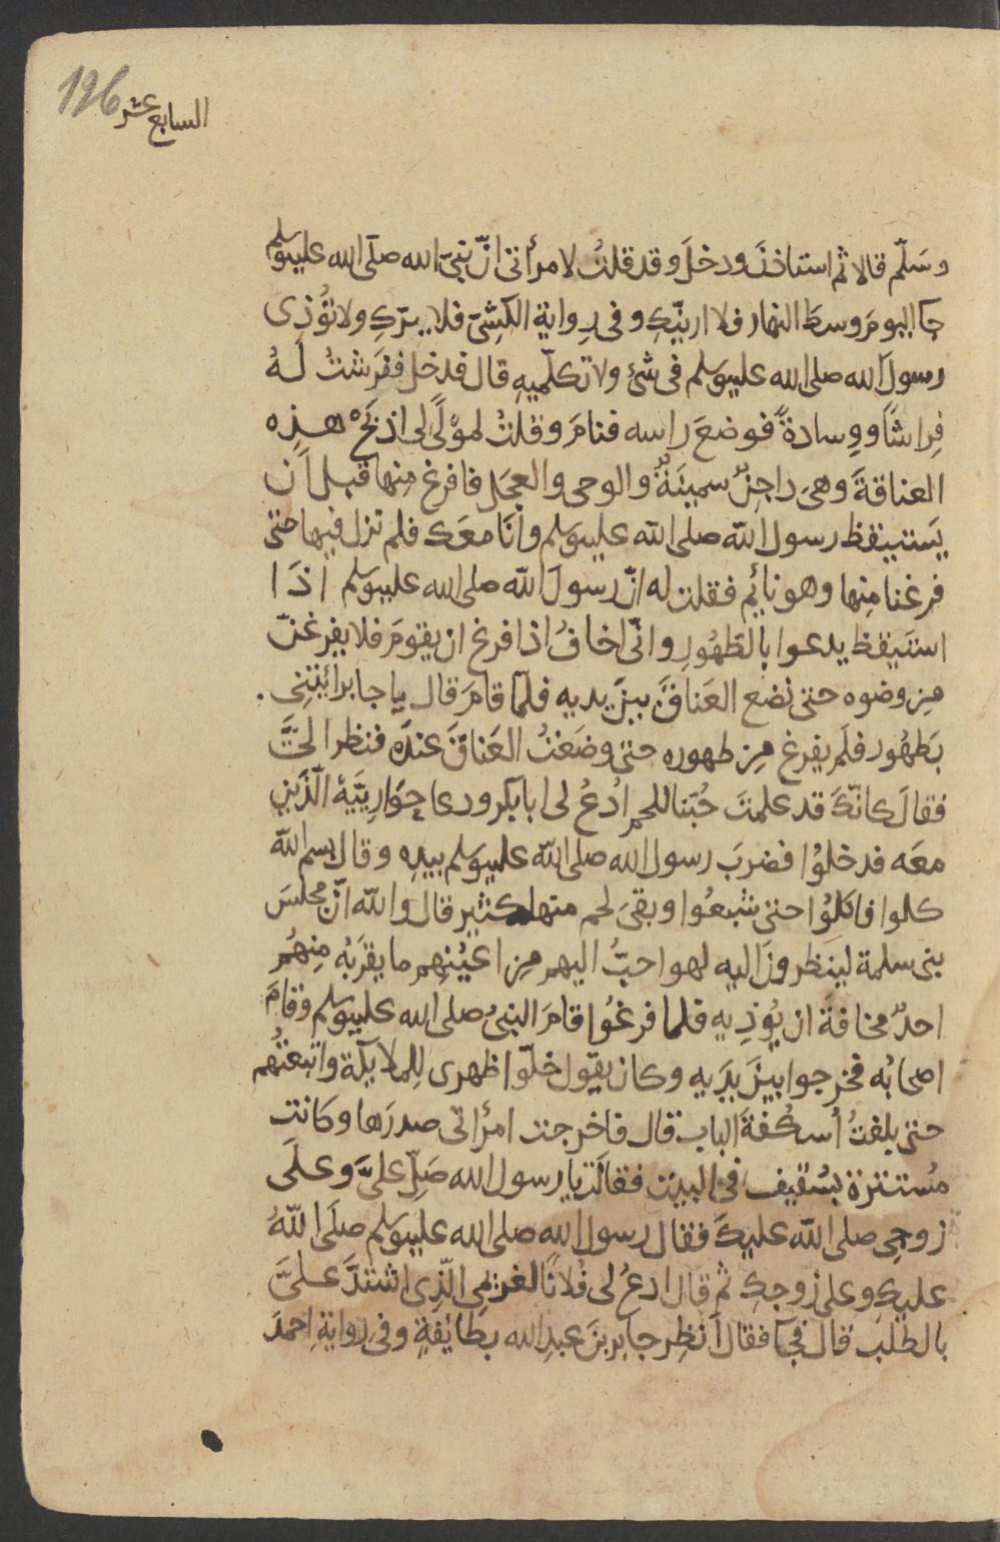 126
السابع عشر
وسَلّم قالا ثم استاذنَ ودخلَ وقد قلتُ لامرأتى انّ نبىّ الله صلّى الله عليه وسلم
جآ اليومَ وسطَ النهار فلا ارينّكِ وفى رِواية الكِشّىّ فلا يرَكِ ولا تُؤذى
رسولَ الله صلى الله عليه وسلم فى شئ ولا تكلّميهِ قال فدخل ففَرشتُ لهُ
فِراشًا ووِسادةً فوضعَ راسه فنامَ وقلتُ لموْلًى لى اذبحْ هذِه
العناقةَ وهىَ داجِنٌ سمينَةٌ والوحى والعجَل فافرغ مِنها قبل أن
يَستيقظ رسول الله صلى الله عليه وسلم وأنَا معَك فلم نزل فيها حتى
فرغنا مِنها وهو نائِم فقلت له انّ رسولَ الله صلى الله عليه وسلم اذَا
استَيقظ يدعوا بالطَهُورِ وانّى اخافُ اذا فرغ ان يقومَ فلا يفرغنّ
مِن وضوه حتى نضع العَناقَ بينَ يديه فلمّا قامَ قال يا جابر ائتنِى
بَطهُور فلَم يفرغ مِن طهوره حتى وضَعَتُ العَناقَ عندَه فنظر الىَّ
فقالَ كانّكَ قد علمتَ حُبّنا للحمِ ادْعُ لى ابابكر ودعا حِوَارِيّيهْ الّذَينِ
معَه فدخلوُا فضربَ رسول الله صلى الله عليه وسلم بيدِه وقال بسم الله
كلوا فاكلوُا حتى شبعُوا وبقىَ لحم منها كثير قال والله انّ مجلسَ
بنى سلمة لينَظرونَ اليه لهو احبُّ اليهم مِن اعيُنهِم ما يقرَبُه مِنهُم
احدٌ مخافةَ ان يُؤذِيه فلما فرغوُا قامَ النبىُ صلى الله عليه وسلم وقامَ
اصحابُه فخرجوا بينَ يدَيه وكان يقَول خلّوا ظهرى لِلملائِكة واتبعتُهم
حتى بلغتُ أسكُفةَ الباب قال فاخرجت امرأتى صدرَها وكانت
مُستترة بسُقيف فى البيت فقالَت يا رسول الله صَلِّ علىَّ وعلَى
زوجِى صلى الله عليكَ فقال رسول الله صلى الله عليه وسلم صلَى اللهُ
عليكِ وعلى زوجكِ ثم قال ادعُ لى فُلانًا لغريمِى الّذِى اشتدَّ علىَّ
بالطلَب قال فجآ فقال أنظِر جابر بنَ عبدِ الله بطائِفةٍ وفى رِوايةِ احمدَ